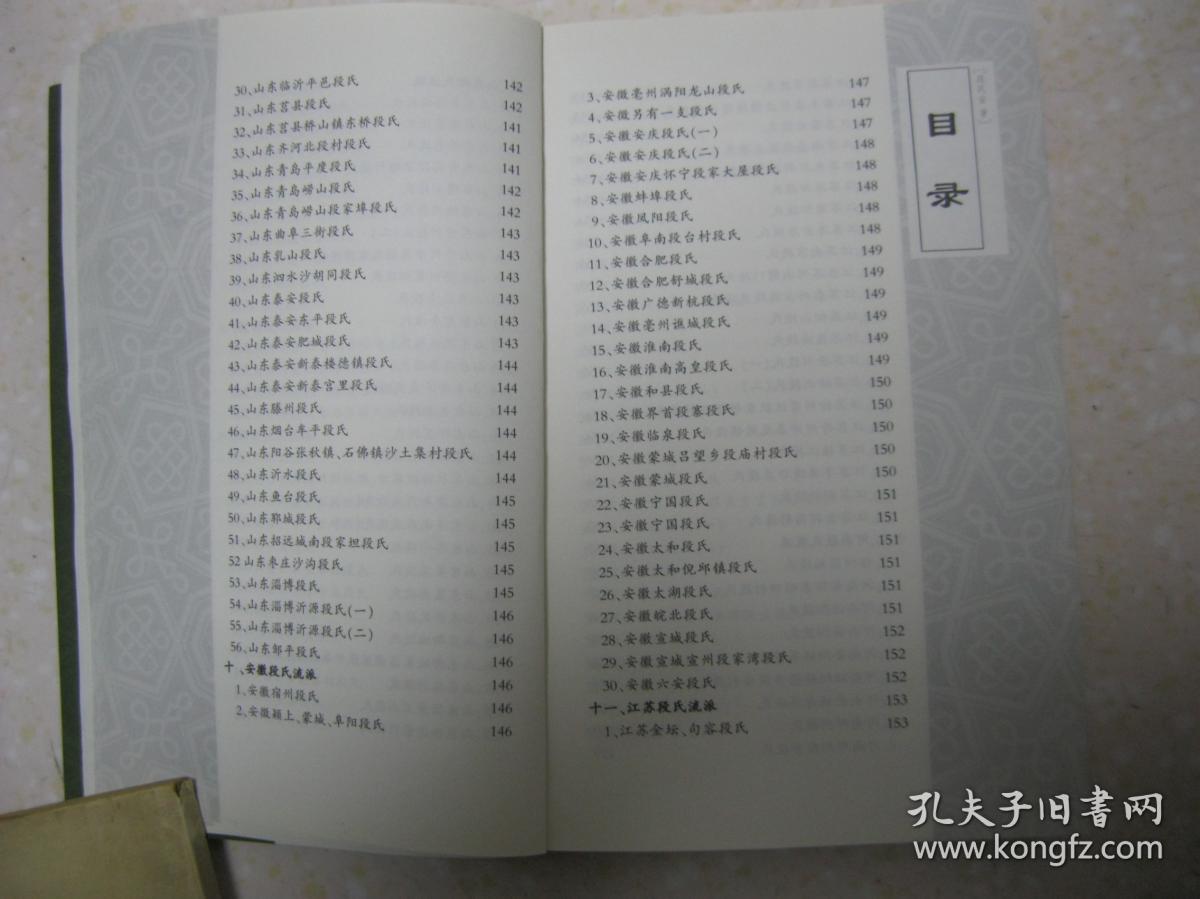 30、山东临沂平邑段氏 142
31、山东莒县段氏 142
32、山东莒县桥山镇东桥段氏 141
33、山东齐河北段村段氏 141
34、山东青岛平度段氏 141
35、山东青岛崂山段氏 142
36、山东青岛崂山段家埠段氏 142
37、山东曲阜三街段氏 143
38、山东乳山段氏 143
39、山东泗水沙胡同段氏 143
40、山东泰安段氏 143
41、山东泰安东平段氏 143
42、山东泰安肥城段氏 143
43、山东泰安新泰楼德镇段氏 144
44、山东泰安新泰宫里段氏 144
45、山东滕州段氏 144
46、山东烟台牟平段氏 144
47、山东阳谷张秋镇、石佛镇沙土集村段氏 144
48、山东沂水段氏 144
49、山东鱼台段氏 145
50、山东郓城段氏 145
51、山东招远城南段家担段氏 145
52 山东枣庄沙沟段氏 145
53、山东淄博段氏 145
54、山东淄博沂源段氏(一) 146
55、山东淄博沂源段氏(二) 146
56、山东邹平段氏 146
十、安徽段氏流派 146
1、安徽宿州段氏 146
2、安徽颍上、蒙城、阜阳段氏 146
3、安徽亳州涡阳龙山段氏 147
4、安徽另有一支段氏 147
5、安徽安庆段氏(一) 147
6、安徽安庆段氏(二) 148
7、安徽安庆怀宁段家大屋段氏 148
8、安徽蚌埠段氏 148
9、安徽凤阳段氏 148
10、安徽阜南段台村段氏 148
11、安徽合肥段氏 149
12、安徽合肥舒城段氏 149
13、安徽广德新杭段氏 149
14、安徽亳州谯城段氏 149
15、安徽淮南段氏 149
16、安徽淮南高皇段氏 149
17、安徽和县段氏 150
18、安徽界首段寨段氏 150
19、安徽临泉段氏 150
20、安徽蒙城吕望乡段庙村段氏 150
21、安徽蒙城段氏 150
22、安徽宁国段氏 151
23、安徽宁国段氏 151
24、安徽太和段氏 151
25、安徽太和倪邱镇段氏 151
26、安徽太湖段氏 151
27、安徽皖北段氏 151
28、安徽宣城段氏 152
29、安徽宣城宣州段家湾段氏 152
30、安徽六安段氏 152
十一、江苏段氏流派 153
1、江苏金坛、句容段氏 153
目录
孔夫子旧书网
www.kongfz.com